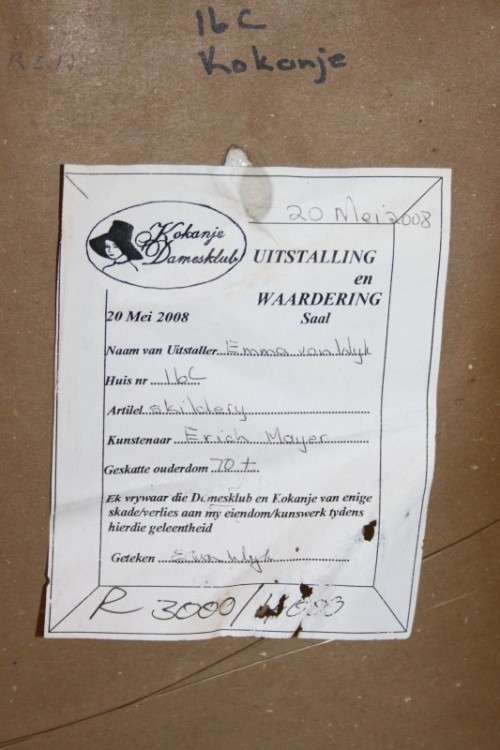 16C
Kokanje
20 Mei 2008
Kokanje
Damesklub
UITSTALLING
en
WAARDERING
20 Mei 2008 Saal
Naam van Uitstaller Emma van Wyk
Huis nr 16C
Artilel skildery
Kunstenaar Erich Mayer
Geskatte ouderdom 70+
Ek vrywaar die Damesklub en Kokanje van enige
skade/verlies aan my eiendom/kunswerk tydens
hierdie geleentheid
Geteken E van Wyk
R 3000/4000